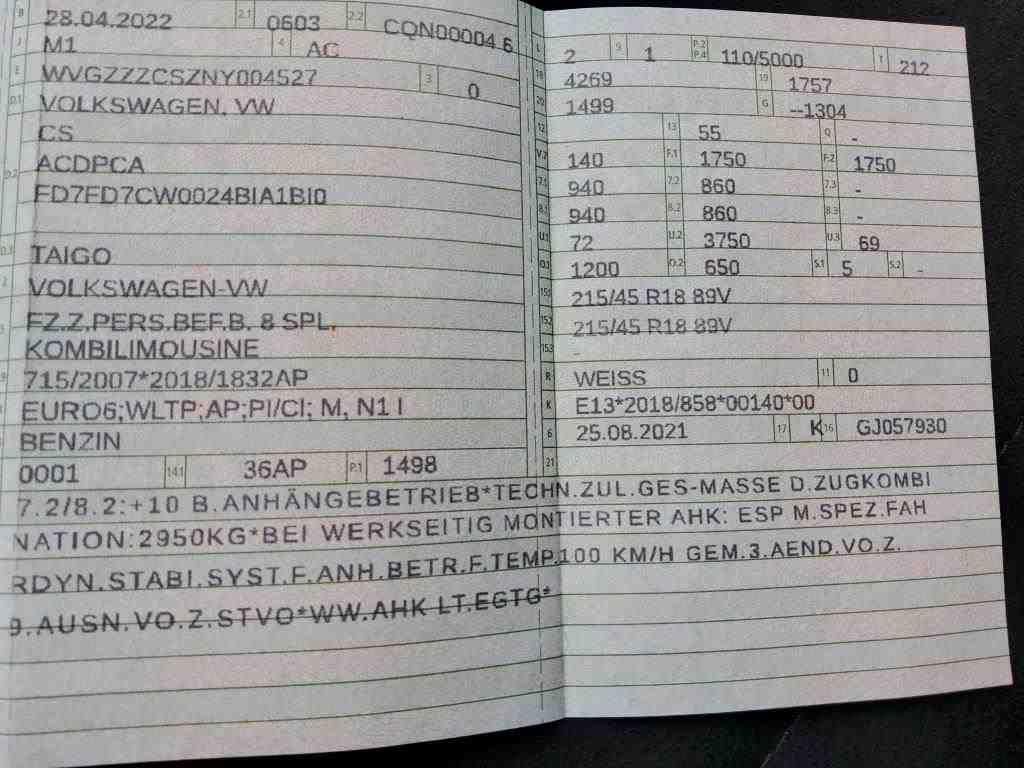 B 28.04.2022 2.1 0603 2.2 CQN00004 6
J M1 4 AC
E WVGZZZCSZNY004527 3 0
D.1 VOLKSWAGEN, VW
CS
D.2 ACDPCA
FD7FD7CW0024BIA1BI0
D.3 TAIGO
2 VOLKSWAGEN-VW
FZ.Z.PERS.BEF.B. 8 SPL.
KOMBILIMOUSINE
715/2007*2018/1832AP
EURO6;WLTP;AP;PI/CI; M, N1 I
BENZIN
0001 14.1 36AP P.1 1498
L 2 9 1 P.2 P.4 110/5000 T 212
18 4269 19 1757
20 1499 G --1304
12 13 55 Q -
V.7 140 F.1 1750 F.2 1750
7.1 940 7.2 860 7.3 -
8.1 940 8.2 860 8.3 -
U.1 72 U.2 3750 U.3 69
O.1 1200 O.2 650 S.1 5 S.2 -
15.1 215/45 R18 89V
15.2 215/45 R18 89V
15.3 -
R WEISS 11 0
K E13*2018/858*00140*00
6 25.08.2021 17 K 16 GJ057930
21
7.2/8.2:+10 B.ANHÄNGEBETRIEB*TECHN.ZUL.GES-MASSE D.ZUGKOMBI
NATION:2950KG*BEI WERKSEITIG MONTIERTER AHK: ESP M.SPEZ.FAH
RDYN.STABI.SYST.F.ANH.BETR.F.TEMP.100 KM/H GEM.3.AEND.VO.Z.
9.AUSN.VO.Z.STVO*WW.AHK LT.EGTG*